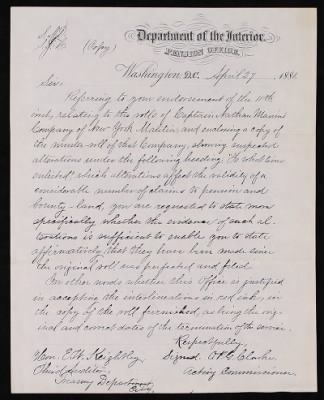 Department of the Interior,
PENSION OFFICE,
(Copy)
Washington, D.C. April 27, 1881.
Sir:
Referring to your endorsement of the 11th
inst, relating to the rolls of Captain Nathan
Company of New York Militia, and enclosing a copy of
the muster roll of that Company, showing suspected
alterations under the following heading, "To what time
enlisted" which alterations affect the validity of a
considerable number of claims to pension and
bounty-land, you are requested to state more
specifically whether the evidence of such al-
terations is sufficient to enable you to state
affirmatively that they have been made since
the original roll was perfected and filed.
In other words whether this Office is justified
in accepting the interlineations in red ink, on
the copy of the roll furnished, as being the orig-
inal and correct dates of the termination of the service.
Respectfully,
Hon. Keightley, Signed. Clarke
Third Auditor, Acting Commissioner.
Treasury Department
City.